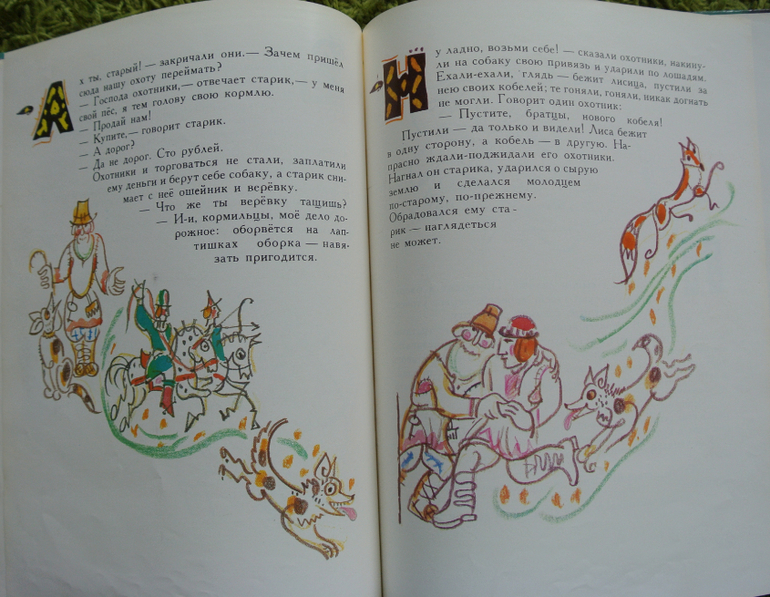 Ах ты, старый! — закричали они. — Зачем пришёл
сюда нашу охоту переймать?
— Господа охотники, — отвечает старик, — у меня
свой пёс, я тем голову свою кормлю.
— Продай нам!
— Купите, — говорит старик.
— А дорог?
— Да не дорог. Сто рублей.
Охотники и торговаться не стали, заплатили
ему деньги и берут себе собаку, а старик сни-
мает с неё ошейник и верёвку.
— Что же ты верёвку тащишь?
— И-и, кормильцы, моё дело до-
рожное: оборвётся на лап-
тишках оборка — навя-
зать пригодится.
Ну ладно, возьми себе! — сказали охотники, накину-
ли на собаку свою привязь и ударили по лошадям.
Ехали-ехали, глядь — бежит лисица, пустили за
нею своих кобелей; те гоняли, гоняли, никак догнать
не могли. Говорит один охотник:
— Пустите, братцы, нового кобеля!
Пустили — да только и видели! Лиса бежит
в одну сторону, а кобель — в другую. На-
прасно ждали-поджидали его охотники.
Нагнал он старика, ударился о сырую
землю и сделался молодцем
по-старому, по-прежнему.
Обрадовался ему ста-
рик — наглядеться
не может.